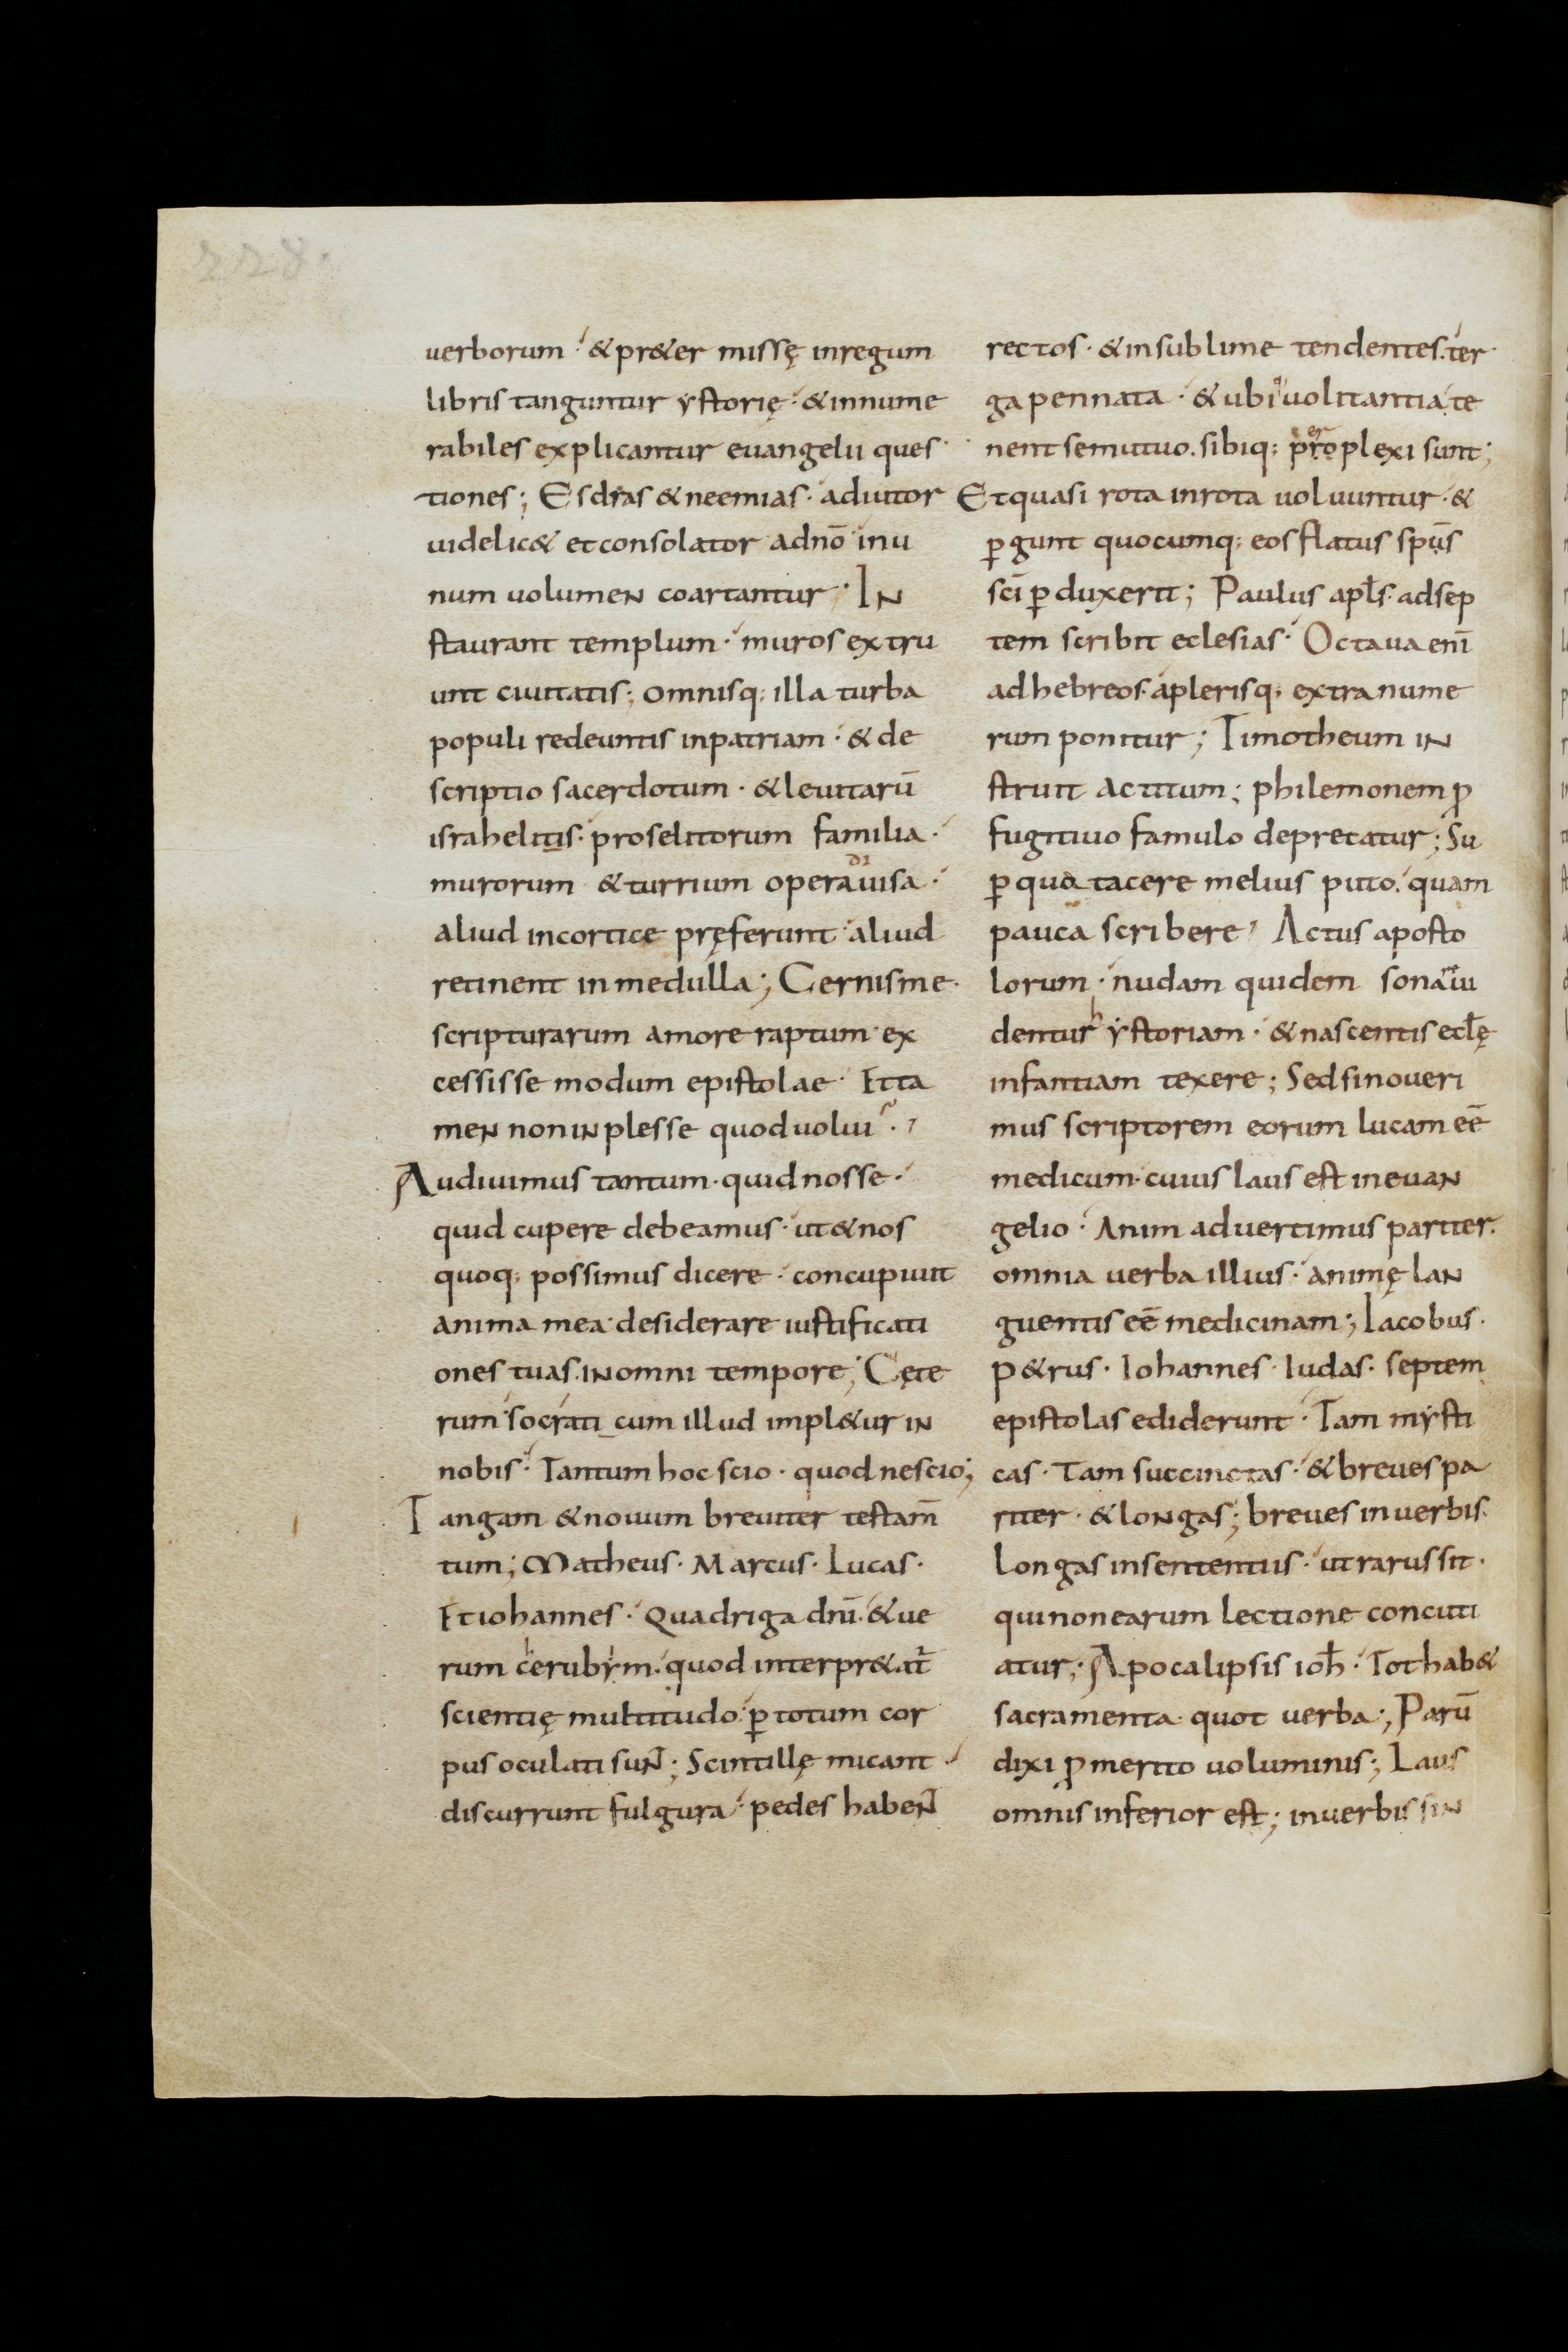 228.
uerborum · & pr&er missę inregum
libris tanguntur ẏstorię · & innume
rabiles explicantur euangelii ques
tiones; Esdras & neemias · adiutor
uidelic& et consolator adnō inu
num uolumen coartantur · In
staurant templum · muros extru
unt ciuitatis; omnisq; illa turba
populi redeuntis inpatriam · & de
scriptio sacerdotum · & leuitarū
israhelitis · proselitorum familia ·
murorum & turrium opera diuisa ·
aliud incortice pręferunt · aliud
retinent in medulla; Cernisme
scripturarum amore raptum ex
cessisse modum epistolae · Et ta
men non inplesse quod uolui ·
Audiuimus tantum · quid nosse ·
quid cupere debeamus · ut & nos
quoq; possimus dicere · concupiuit
anima mea desiderare iustificati
ones tuas in omni tempore; Cęte
rum socrati cum illud impl&ur in
nobis · Tantum hoc scio · quod nescio;
Tangam & nouum breuiter testam̄
tum; Matheus · Marcus · Lucas ·
Et iohannes · Quadriga dnī · & ue
rum cherubẏm · quod interpr&at̄
scientię multitudo · ꝑ totum cor
pus oculati sun̄; Scintillę micant
discurrunt fulgura · pedes haben̄
rectos · & insublime tendentes · ter
ga pennata · & ubiq uolitantia · te
nent semutuo · sibiq; pro er plexi sunt;
Et quasi rota inrota uoluuntur · &
ꝑgunt quocumq; eos flatus spūs
scī ꝑduxerit; Paulus apl̄s · adsep
tem scribit eclesias · Octaua enī
ad hebreos · aplerisq; extra nume
rum ponitur; Timotheum in
struit ac titum; philemonem ꝓ
fugitiuo famulo deprecatur; Su
ꝑ qua tacere melius puto · quam
pauca scribere · Actus aposto
lorum · nudam quidem sonare ui
dentur hẏstoriam · & nascentis ecl̄ę
infantiam texere; Sed si noueri
mus scriptorem eorum lucam eē
medicum · cuius laus est in euan
gelio · Anim aduertimus pariter ·
omnia uerba illius · animę lan
guentis eē medicinam; Iacobus ·
P&rus · Iohannes · Iudas · septem
epistolas ediderunt · Tam mẏsti
cas · Tam succinctas · & breues pa
riter · & longas; breues in uerbis ·
Longas in sententiis · ut rarus sit ·
qui non earum lectione concuti
atur; Apocalipsis ioh̄ · Tot hab&
sacramenta · quot uerba; Parū
dixi ꝓ merito uoluminis; Laus
omnis inferior est; in uerbis sin